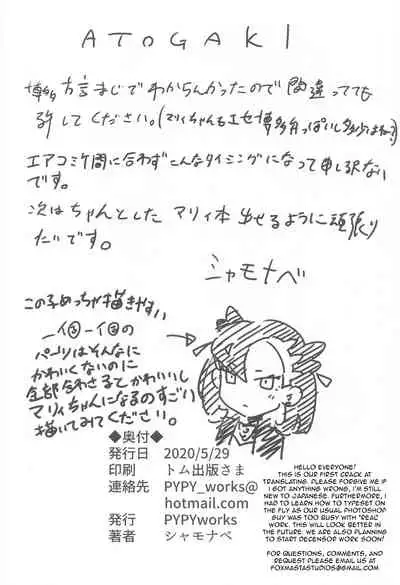 ATOGAKI
博多方言まじでわからんかったので間違ってても
許してください。(マリィちゃんもエセ博多弁っぽいし多少はね?)
エアコミケ間に合わずこんなタイミングになって申し訳ない
です。
次はちゃんとしたマリィ本出せるように頑張り
たいです。
シャモナベ
この子めっちゃ描きやすい
パーツはそんなに
かわいくないのに
全部合わさるとかわいいし
マリィちゃんになるのすごい
描いてみてください。
◆奥付◆
発行日 2020/5/29
印刷 トム出版さま
連絡先 PYPY_works@
hotmail.com
発行 PYPYworks
著者 シャモナベ
HELLO EVERYONE!
THIS IS OUR FIRST CRACK AT
TRANSLATING. PLEASE FORGIVE ME IF
I GOT ANYTHING WRONG, I'M STILL
NEW TO JAPANESE. FURTHERMORE, I
HAD TO LEARN HOW TO TYPESET ON
THE FLY AS OUR USUAL PHOTOSHOP
GUY WAS TOO BUSY WITH "REAL"
WORK. THIS WILL LOOK BETTER IN
THE FUTURE. WE ARE ALSO PLANNING
TO START DECENSOR WORK SOON!
FOR QUESTIONS, COMMENTS, AND
REQUEST PLEASE EMAIL US AT
FOXMASTASTUDIOS@GMAIL.COM